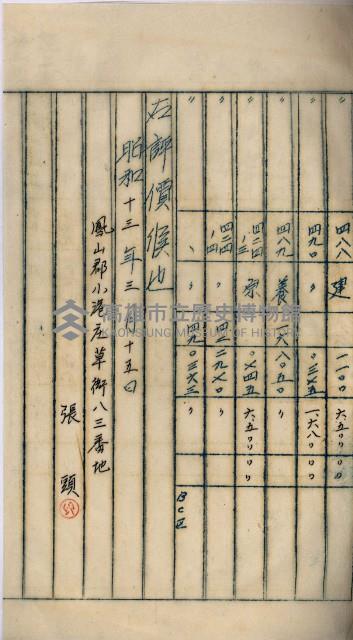 〃 四八八 建 一一〇〇 六五〇〇〇
〃 四九〇 〃 〇三七五 一六八〇〇〇
〃 四八九 養 一六八〇五〇 〃
〃 四二四ノ三 原 〇七四五 六五〇〇〇
〃 四二四ノ四 〃 四二九七〇 〃
〃 〃 四九〇三六三 〃 BC区
右評價候也
昭和十三年三月十五日
鳳山郡小港庄草衙八三番地
張頭
高雄市立歷史博物館
KAOHSIUNG MUSEUM OF HISTORY